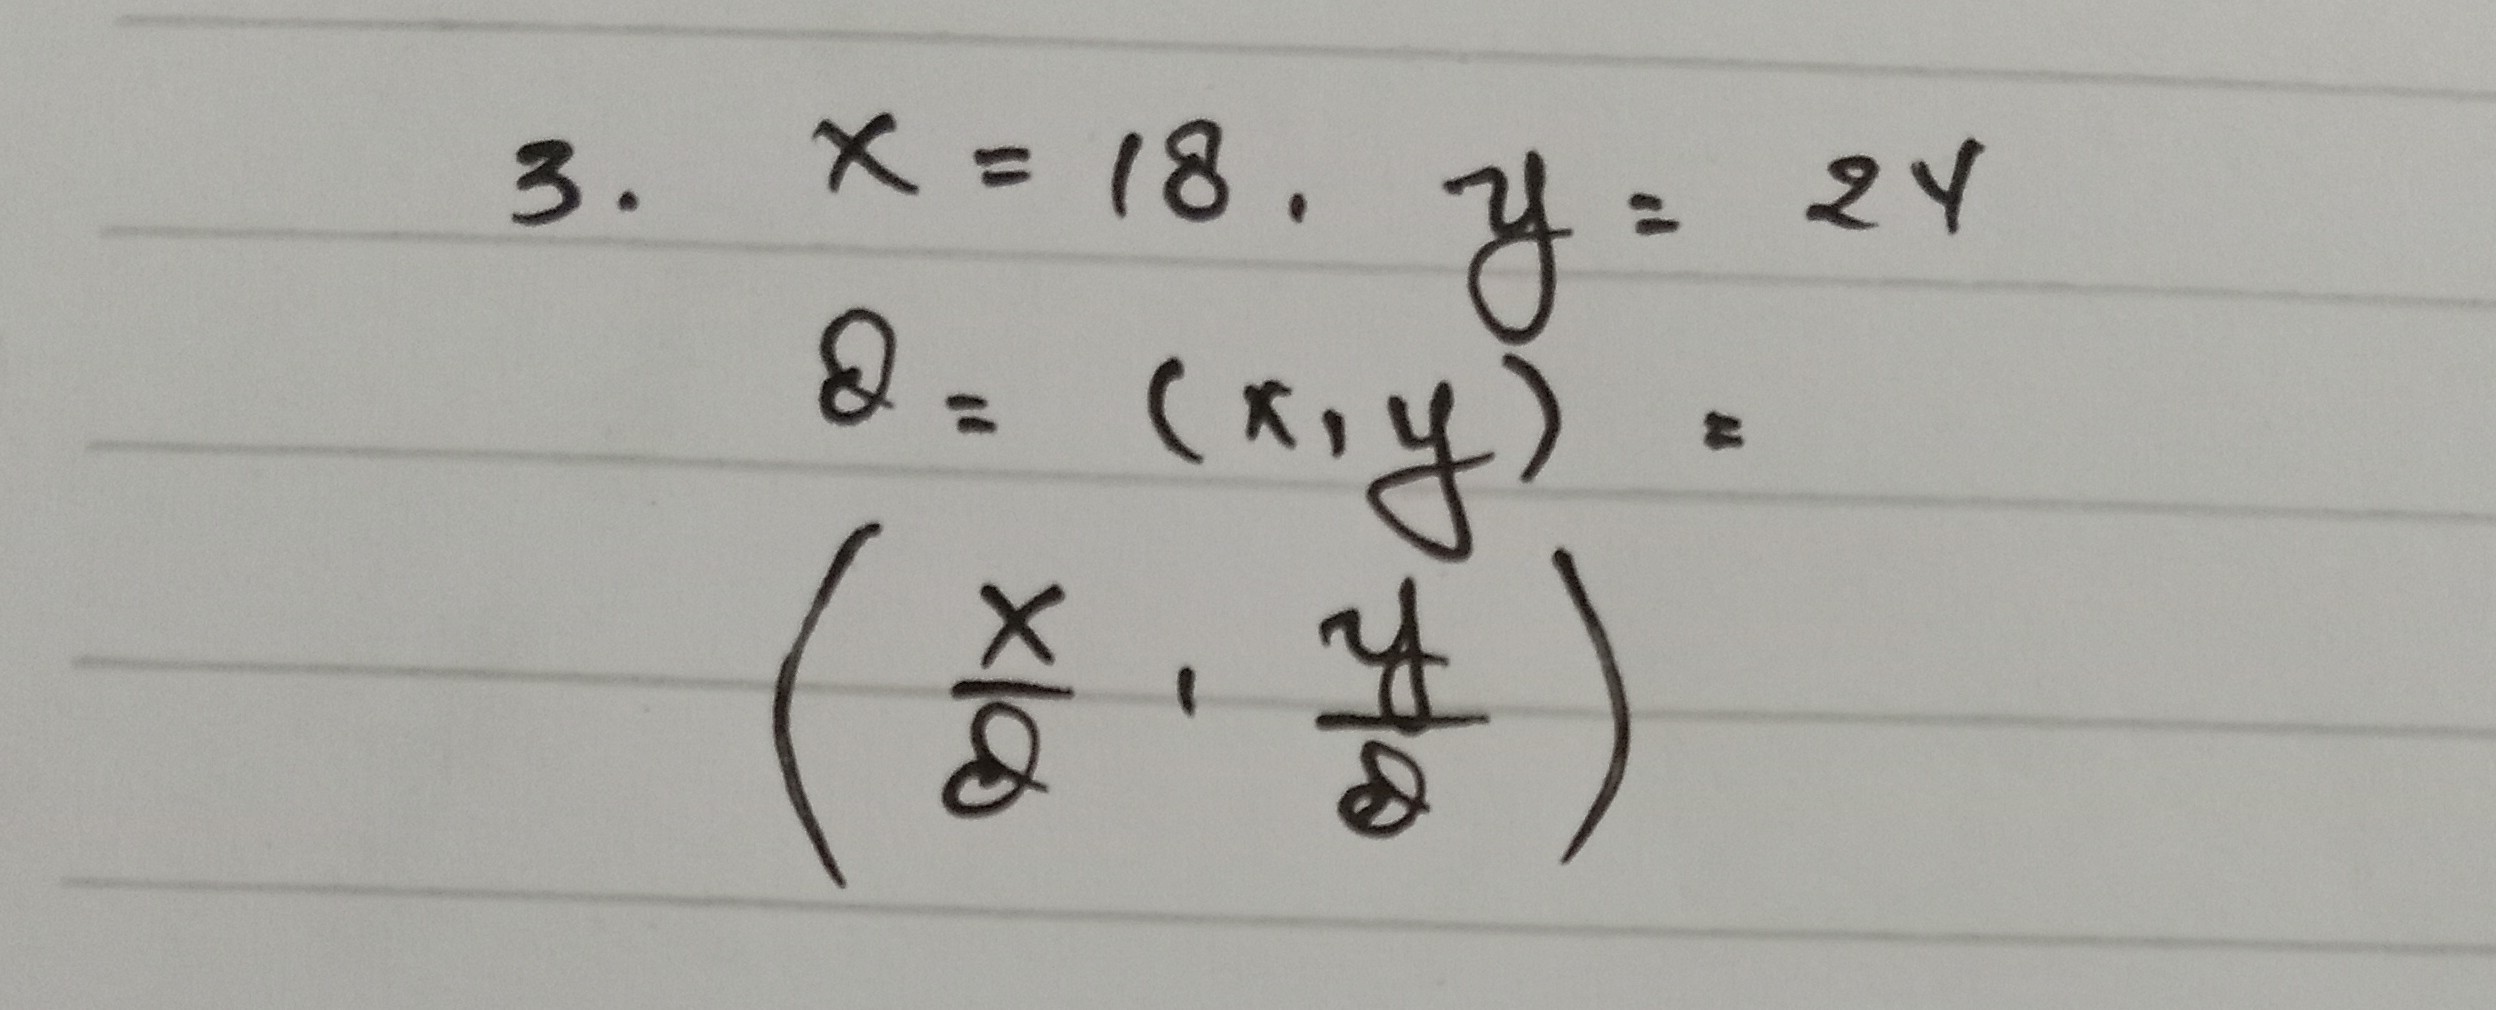 3. x = 18, y = 24
∂ = (x, y) =
(x/∂, y/∂)